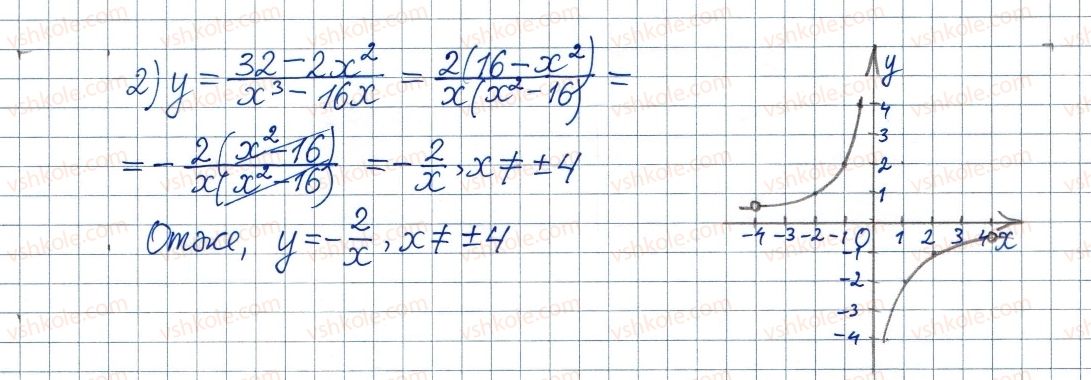 2) y = \frac{32-2x^2}{x^3-16x} = \frac{2(16-x^2)}{x(x^2-16)} =
= -\frac{2(x^2-16)}{x(x^2-16)} = -\frac{2}{x}, x ≠ ±4
Отже, y = -\frac{2}{x}, x ≠ ±4
y
4
3
2
1
-4 -3 -2 -1 0 1 2 3 4 x
-1
-2
-3
-4
vshkole.com